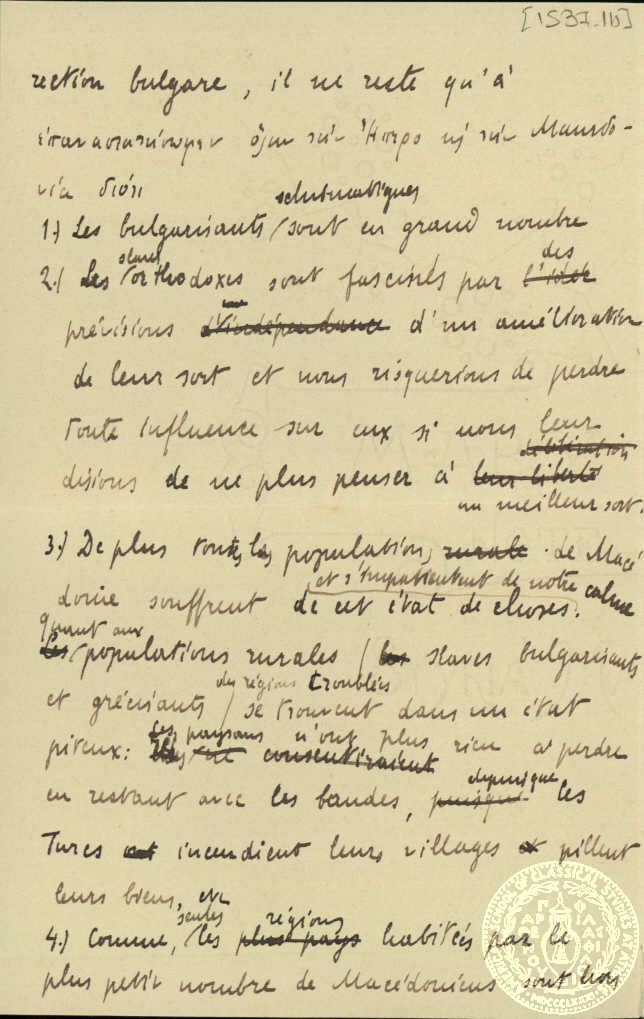 [1537.1b]
rection bulgare, il ne reste qu'à
ἐπαναστατήσωμεν ὅλην τὴν Ἤπειρο κὶ τὴν Μακεδο-
νία διότι
schismatiques
1.) Les bulgarisants / sont en grand nombre
slaves des
2.) Les / orthodoxes sont fascinés par l'idée
prévisions d'indépendance d'un amélioration
de leur sort et nous risquerions de perdre
toute influence sur eux si nous leur
délibération
disions de ne plus penser à leur liberté
un meilleur sort.
3.) De plus toutes les populations rurale de Macé
et s'impatientent de notre calme
doine souffrent de cet état de choses.
Quant aux
les / populations rurales / les slaves bulgarisants
des régions troublées
et grécisants / se trouvent dans un état
Les paysans n'ont plus rien à perdre
piteux: consentiraient
depuis que
en restant avec les bandes, puisque les
Turcs ont incendient leurs villages et pillent
leurs biens, etc
seules régions
4.) Comme, / les plus pays habités par le
plus petit nombre de Macédoniens sont hors